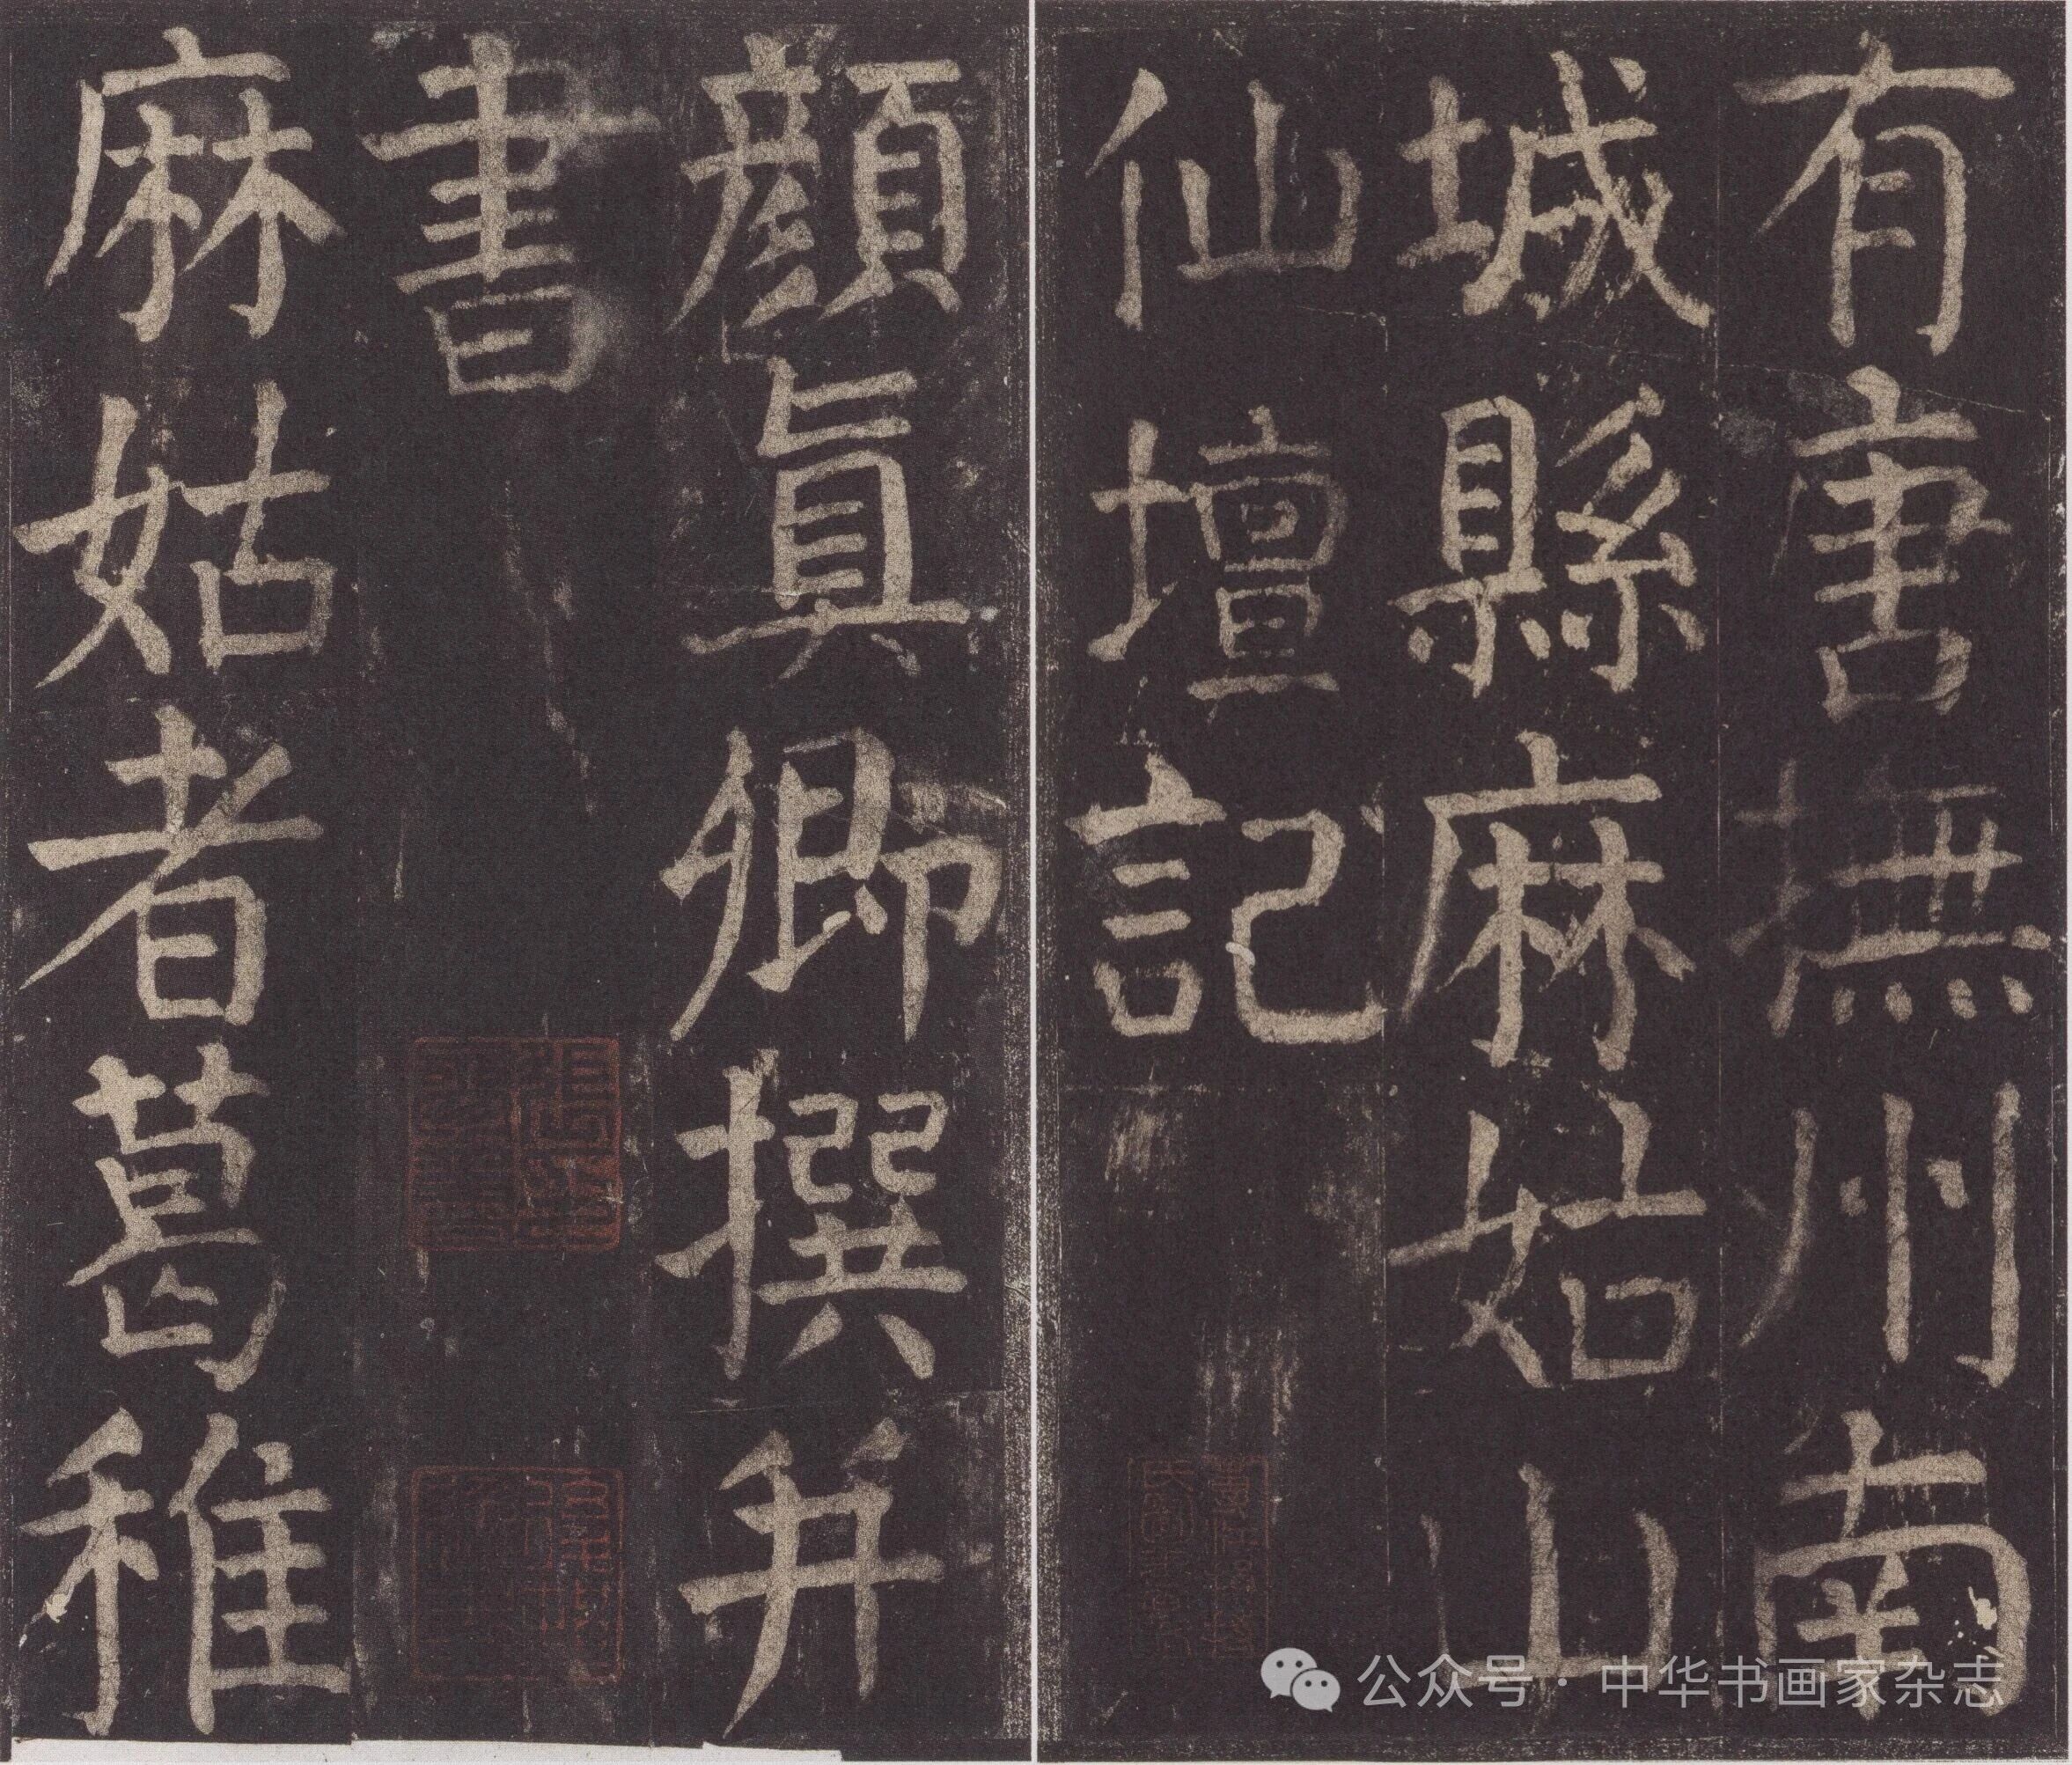 有唐撫州南
城縣麻姑山
仙壇記
顏眞卿撰并
書
麻姑者葛稚
公众号 · 中华书画家杂志